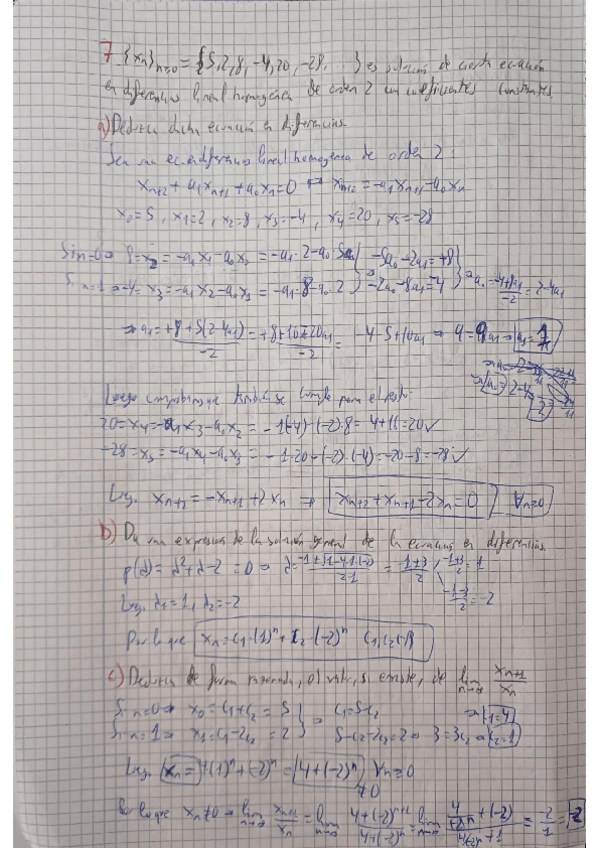 7. {xn}n≥0 = {5, 2, 8, -4, 20, -28, ...} es solución de cierta ecuación
en diferencias lineal homogénea de orden 2 con coeficientes constantes.
a) Deduzca dicha ecuación en diferencias.
Sea una ec en diferencias lineal homogénea de orden 2:
xn+2 + a1xn+1 + a0xn = 0 ↔ xn+2 = -a1xn+1 - a0xn
x0 = 5, x1 = 2, x2 = 8, x3 = -4, x4 = 20, x5 = -28
Si n=0 ⇒ 8 = x2 = -a1x1 - a0x0 = -a1·2 - a0·5 } -5a0 - 2a1 = +8
Si n=1 ⇒ -4 = x3 = -a1x2 - a0x1 = -a1·8 - a0·2 } -2a0 - 8a1 = -4 } ⇒ a0 = (-4+8a1)/-2 = 2-4a1
⇒ a1 = (+8+5(2-4a1))/-2 = (+8+10-20a1)/-2 = -4-5+10a1 ⇒ 9 = 9a1 ⇒ a1 = 1
⇒ a0 = 2-4 = -2
Luego comprobamos también se cumple para el resto:
20 = x4 = -a1x3 - a0x2 = -1(-4) - (-2)·8 = 4+16 = 20 ✓
-28 = x5 = -a1x4 - a0x3 = -1·20 - (-2)·(-4) = -20-8 = -28 ✓
Luego xn+2 = -xn+1 + 2xn ⇒ xn+2 + xn+1 - 2xn = 0 ∀n≥0
b) Da una expresión de la solución general de la ecuación en diferencias
p(λ) = λ² + λ - 2 = 0 ⇒ λ = (-1±√(1-4·1·(-2)))/(2·1) = (-1±3)/2
(-1+3)/2 = 1
(-1-3)/2 = -2
Luego λ1 = 1, λ2 = -2
Por lo que xn = c1·(1)^n + c2·(-2)^n c1, c2 ∈ ℝ
c) Deduzca de forma razonada, el valor, si existe, de lim n→∞ xn+1/xn
Si n=0 ⇒ x0 = c1+c2 = 5 } ⇒ c1 = 5-c2 ⇒ c1 = 4
Si n=1 ⇒ x1 = c1-2c2 = 2 } 5-c2-2c2 = 2 ⇒ 3 = 3c2 ⇒ c2 = 1
Luego xn = 4(1)^n + (-2)^n = 4+(-2)^n ∀n≥0
≠0
Por lo que xn≠0 ⇒ lim n→∞ xn+1/xn = lim n→∞ (4+(-2)^n+1)/(4+(-2)^n) = lim n→∞ (4/(-2)^n + (-2))/(4/(-2)^n + 1) = -2/1 = -2